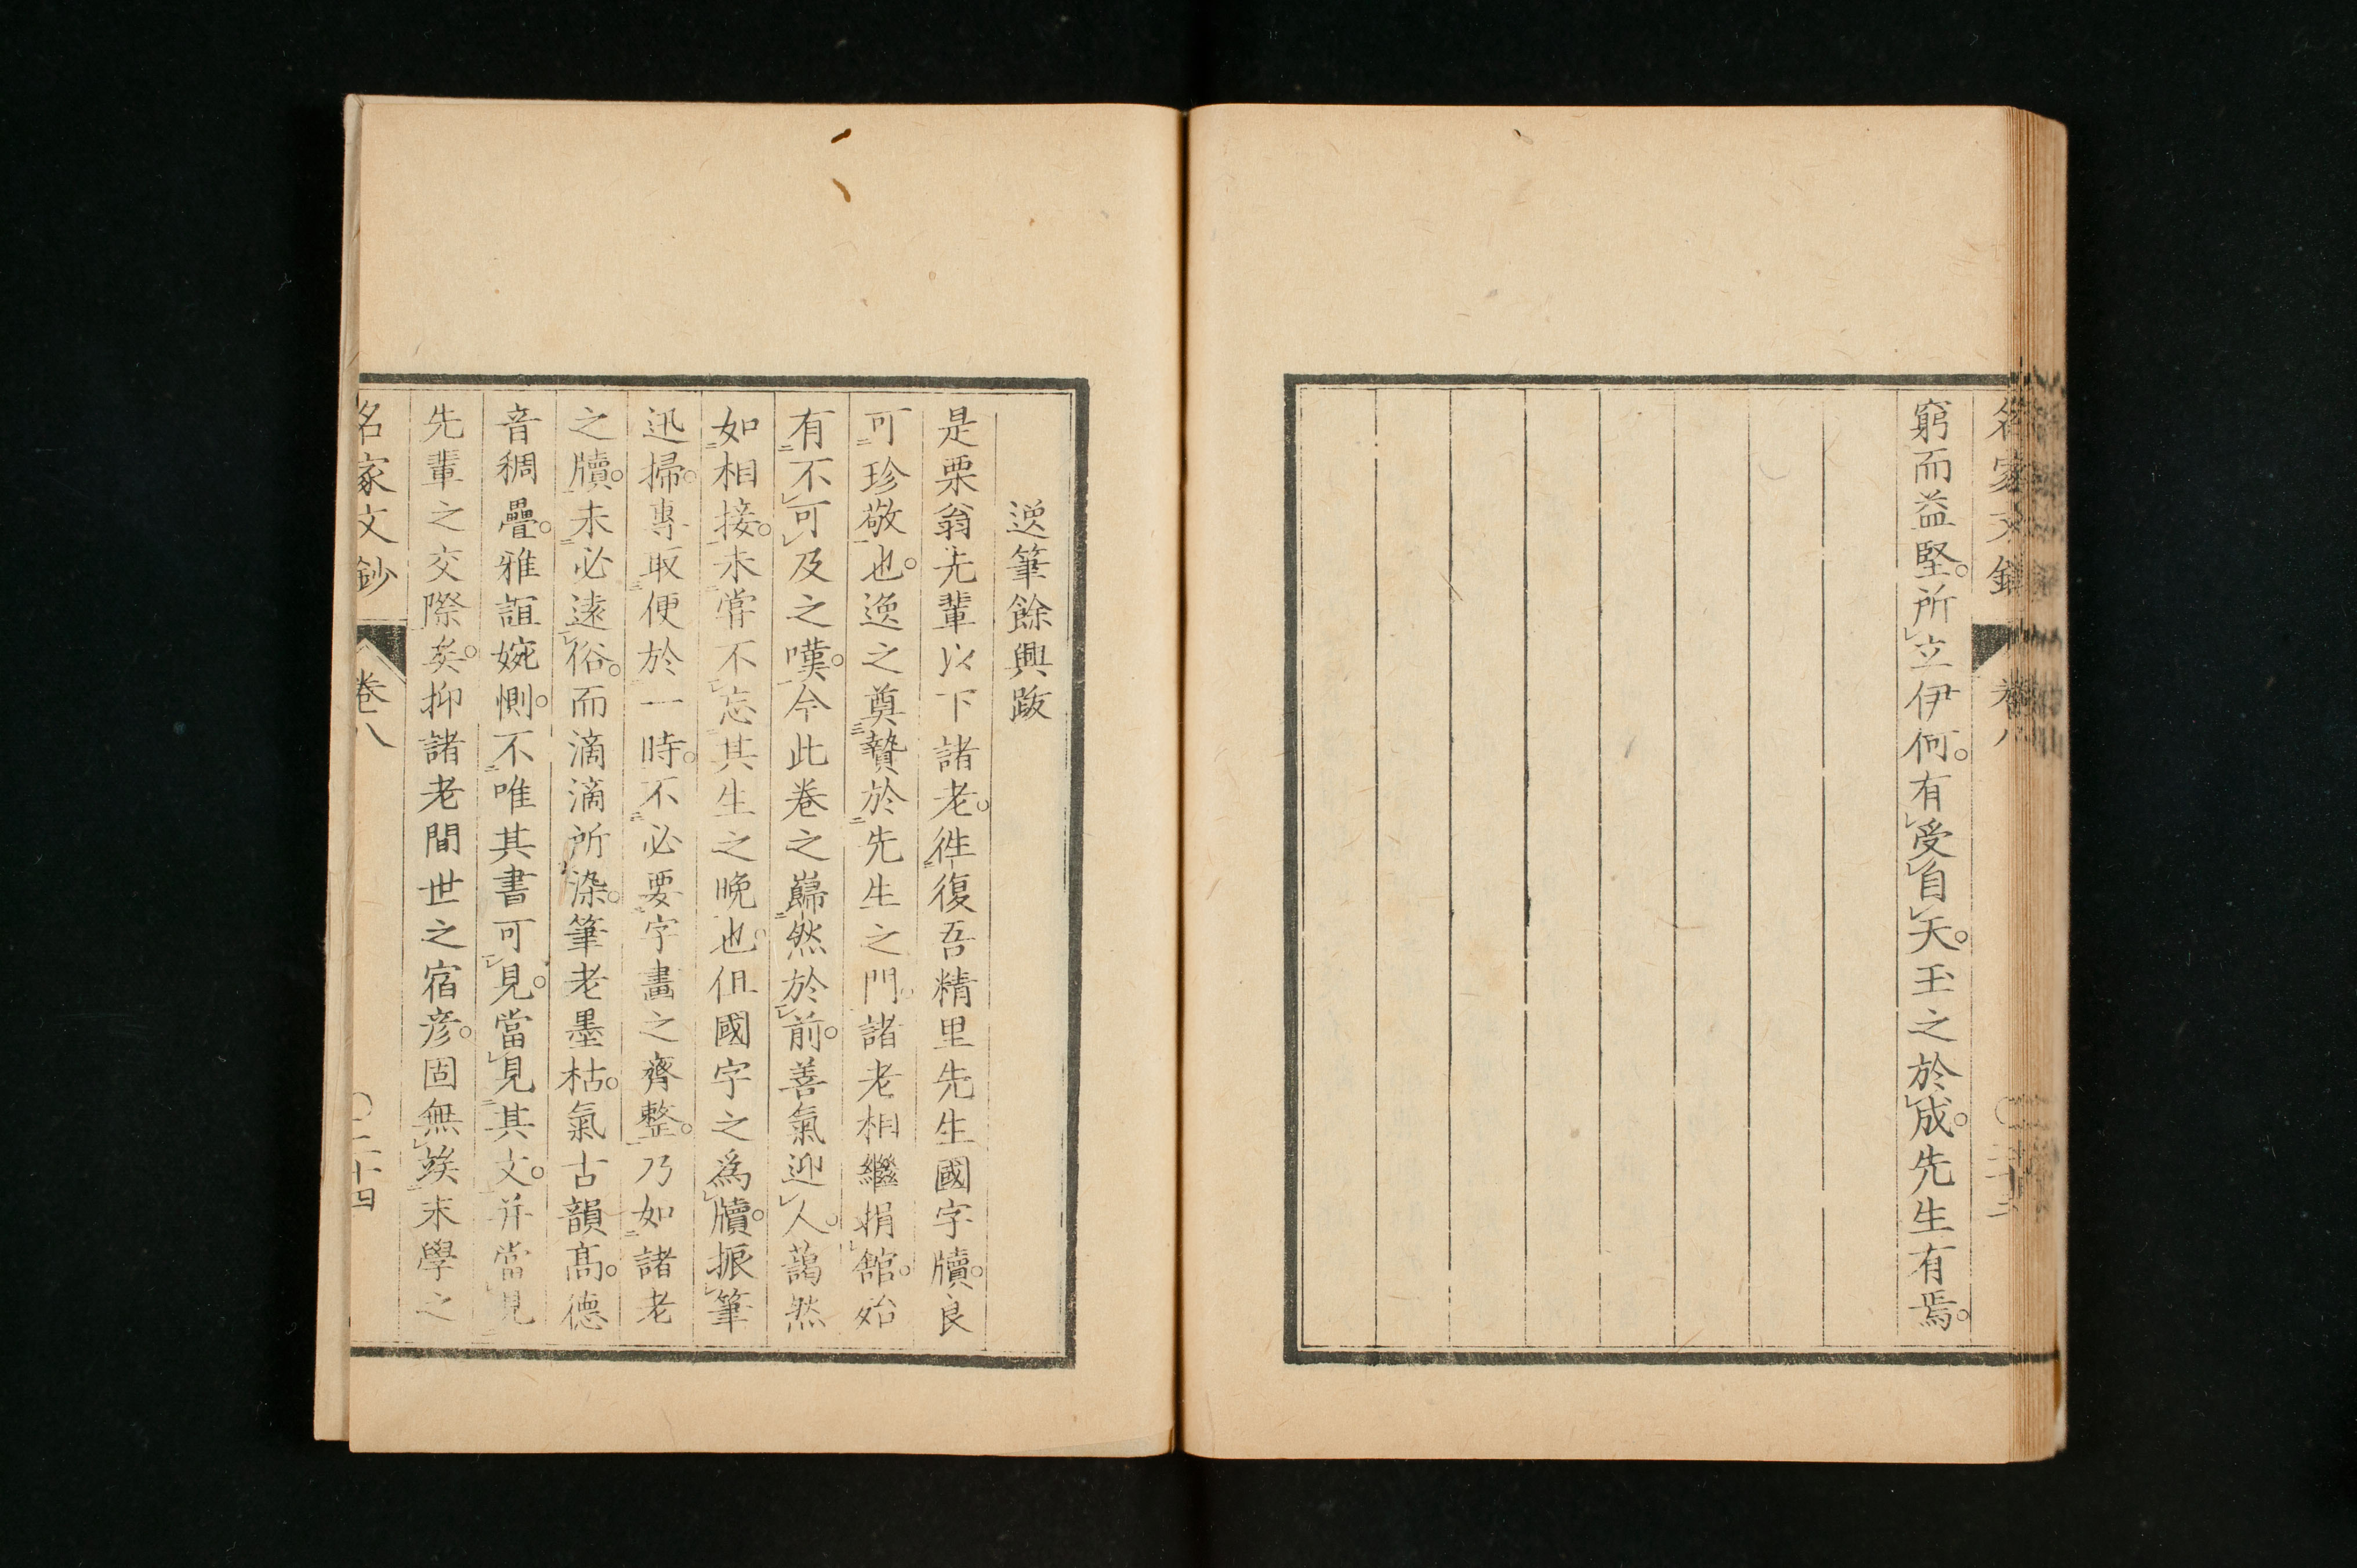 名家文鈔 卷八 〇二十三
窮而益堅。所立伊何。有受自天。玉之於成。先生有焉。
逸筆餘興跋
是栗翁先輩以下諸老。徃復吾精里先生國字牘。良
可珍敬也。逸之奠贄於先生之門。諸老相繼捐舘。始
有不可及之嘆。今此卷之巋然於前。善氣迎人。藹然
如相接。未嘗不忘其生之晚也。但國字之爲牘。振筆
迅掃。專取便於一時。不必要字畫之齊整。乃如諸老
之牘。未必遠俗。而滴滴所染。筆老墨枯。氣古韻高。德
音稠疊。雅誼婉惻。不唯其書可見。當見其文。并當見
先輩之交際矣。抑諸老間世之宿彦。固無竢末學之
名家文鈔 卷八 〇二十四